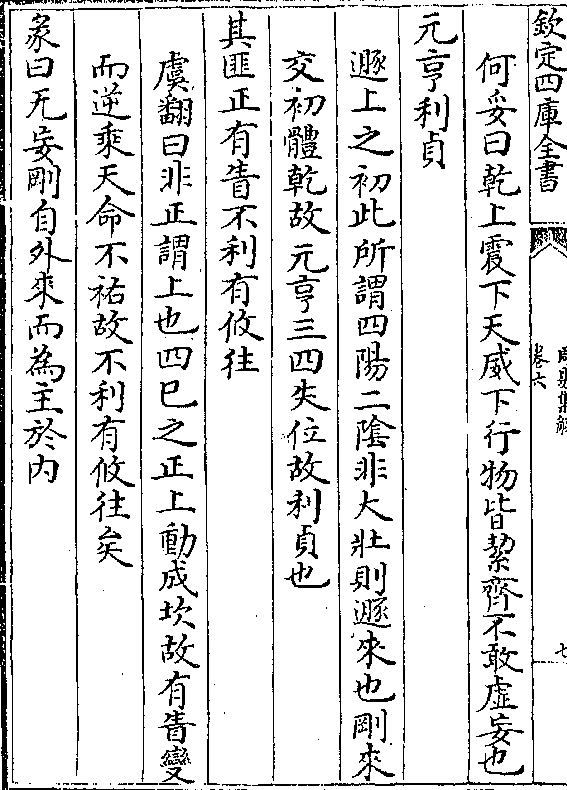 欽定四庫全書
周易集解
卷六
七
何妥曰乾上震下天威下行物皆絜齊不敢虛妄也
元亨利貞
遯上之初此所謂四陽二隂非大壯則遯來也剛來
交初體乾故元亨三四失位故利貞也
其匪正有眚不利有攸往
虞翻曰非正謂上也四已之正上動成坎故有眚變
而逆乘天命不祐故不利有攸往矣
彖曰无妄剛自外來而為主於内